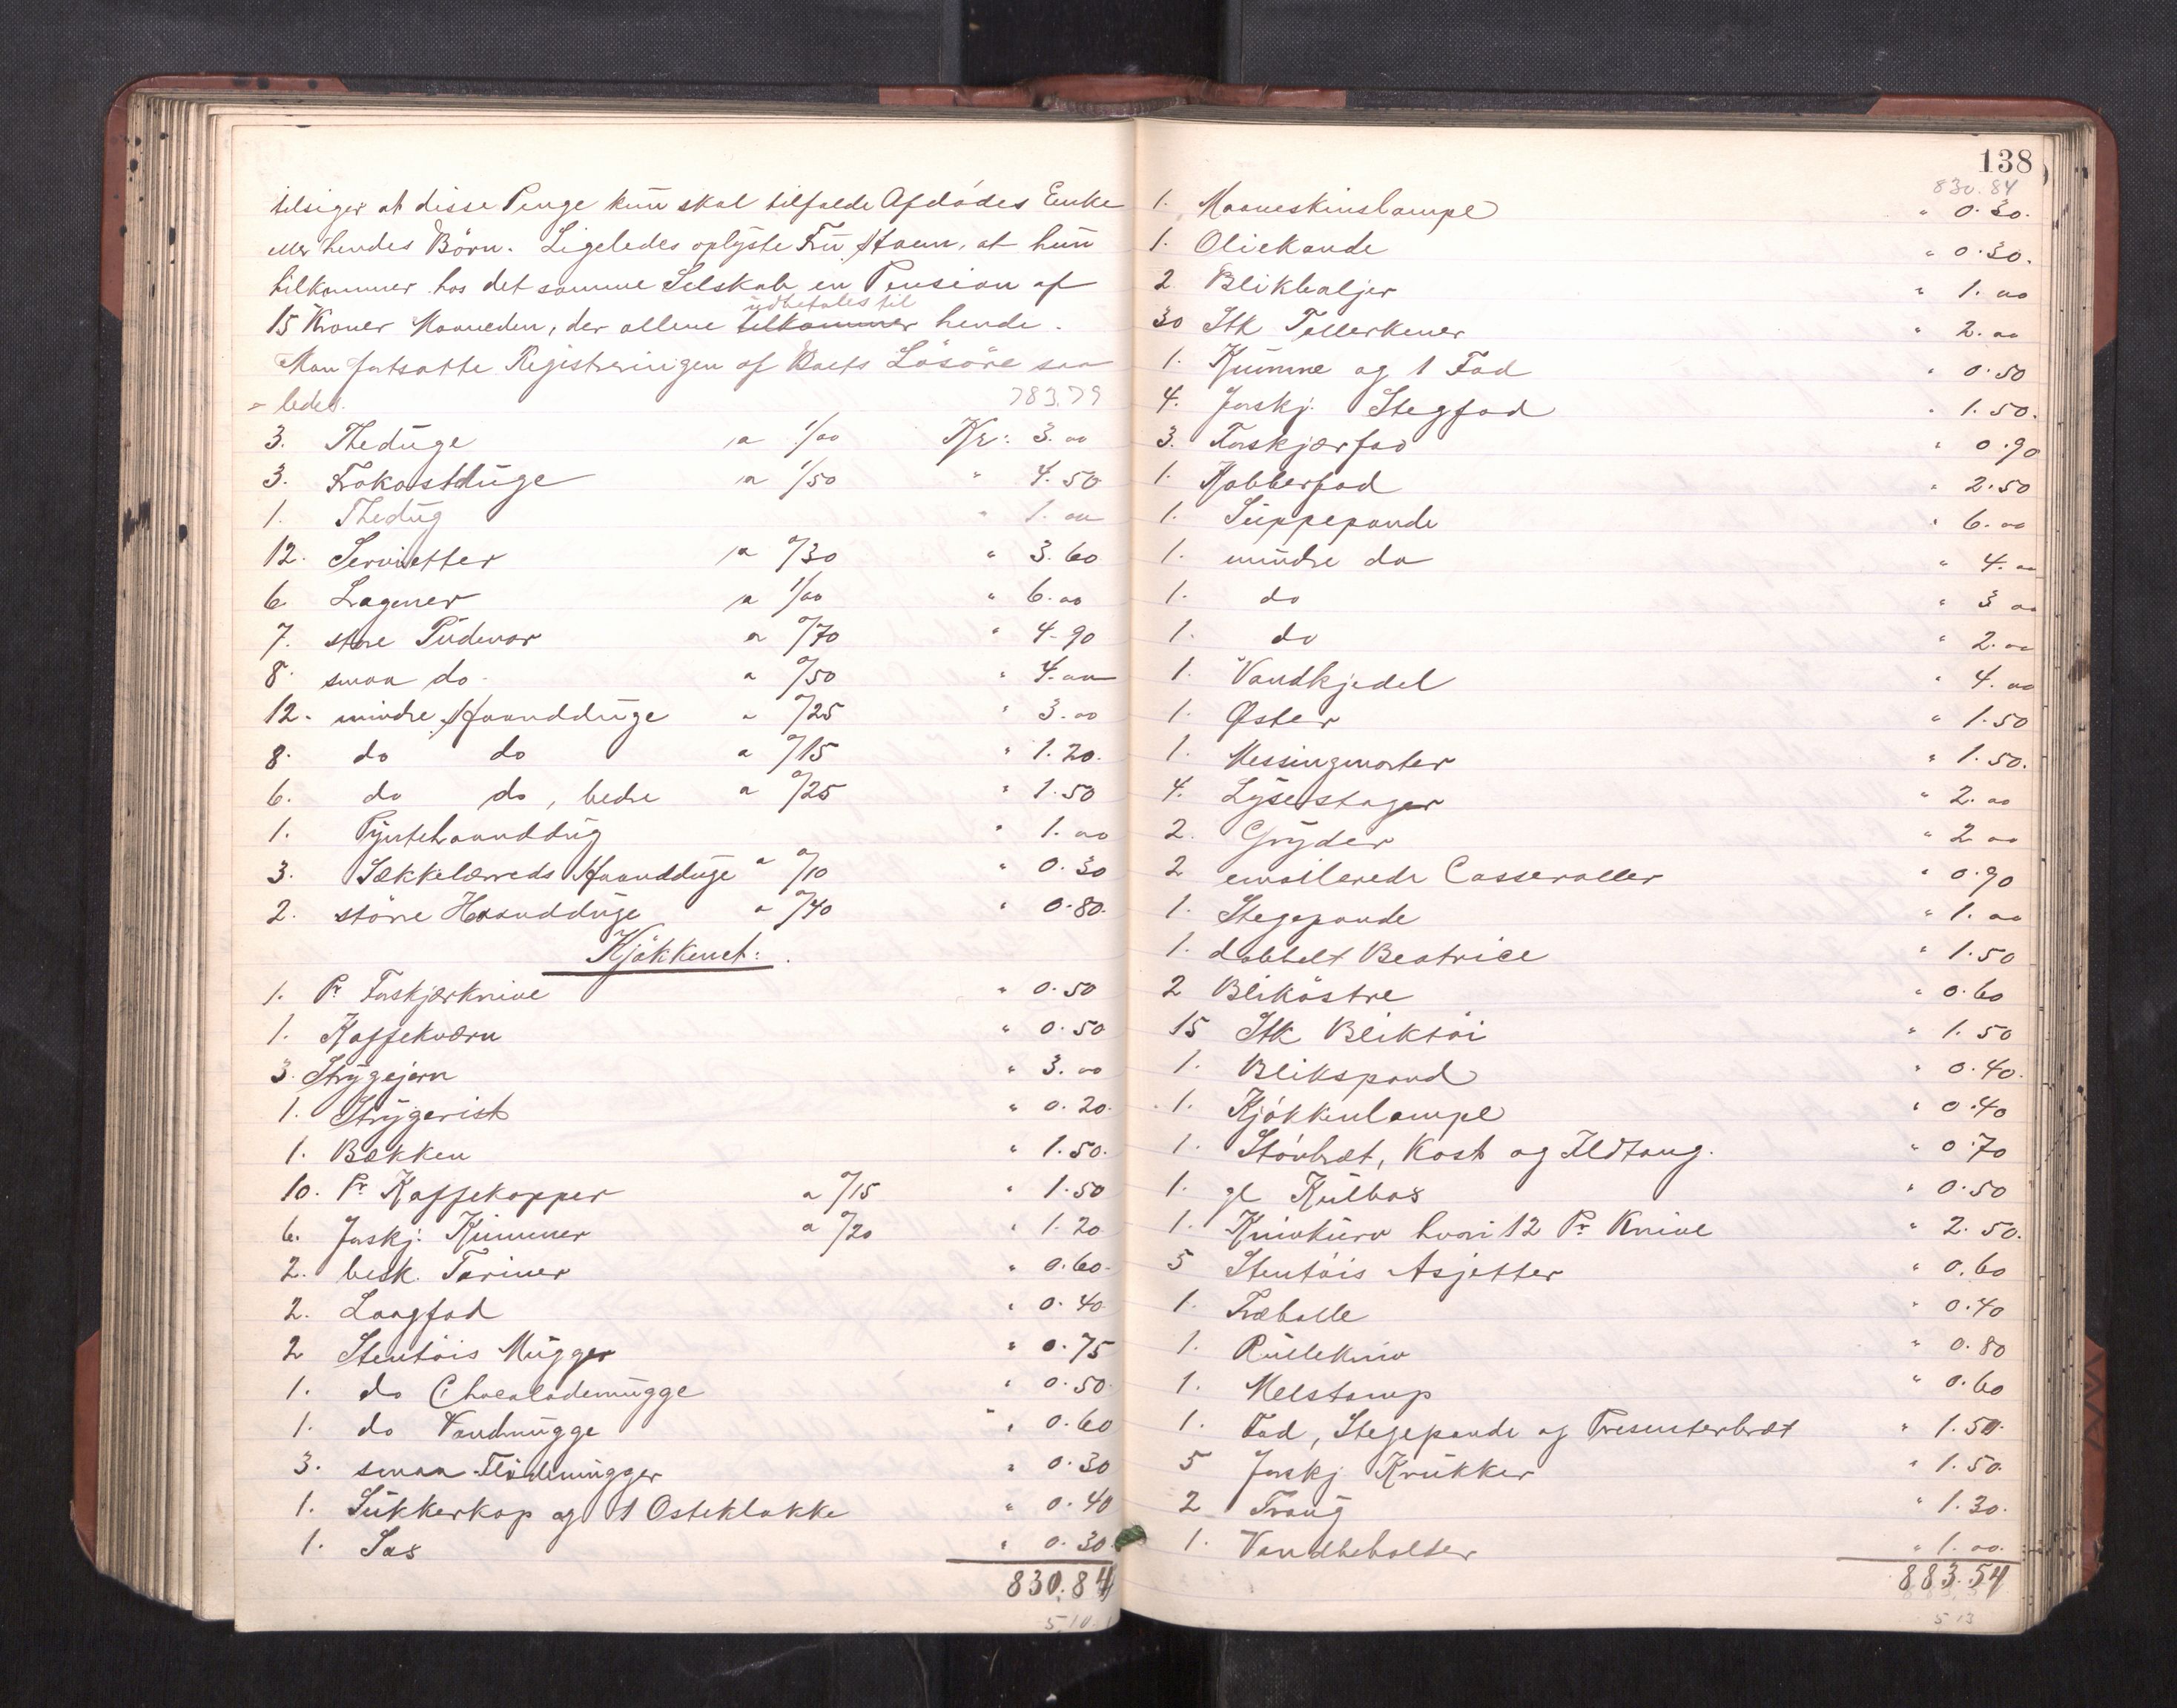 tilsiger at disse Penge kun skal tilfalde Afdødes Enke
eller hendes Börn. Ligeledes oplyste Fru Haan, at hun
tilkommer hos det samme Selskab en Pension af
udbetales til
15 Kroner Maaneden, der allene tilkommer hende.
Man fortsatte Registreringen af Boets Lösöre saa
= ledes. 783.79
3. Theduge a 1/00 Kr: 3.00
3. Frokostduge a 1/50 " 4.50
1. Thedug " 1.00
12. Servietter a 0/30 " 3.60
6. Lagener a 1/00 " 6.00
7. store Pudevar a 0/70 " 4.90
8. smaa do. a 0/50 " 4.00
12. mindre Haandduge a 0/25 " 3.00
8. do do a 0/15 " 1.20.
6. do do, bedre a 0/25 " 1.50
1. Pyntehaanddug " 1.00
3. Sækkelærreds Haandduge a 0/10 " 0.30
2. större Haandduge a 0/40 " 0.80.
Kjökkenet:
1. Pr Forskjærknive " 0.50
1. Kaffekværn " 0.50
3. Strygejern " 3.00
1. Strygerist " 0.20.
1. Bækken " 1.50.
10. Pr Kaffekopper a 0/15 " 1.50
6. forskj. Kummer a 0/20 " 1.20
2. besk. Teriner " 0.60.
2. Laagfad " 0.40
2 Stentöis Mugger " 0.75
1. do Chocolademugge " 0.50
1. do Vandmugge " 0.60
3. smaa Flödemugger " 0.30
1. Sukkerkop og 1 Osteklokke " 0.40
1. Sas " 0.30
830.84
5.10.
138
830.84
1. Maaneskinslampe " 0.30.
1. Oliekande " 0.30.
2 Blikbaljer " 1.00
30 Stk Tallerkener " 2.00
1. Kumme og 1 Fad " 0.50
4. forskj. Stegfad " 1.50.
3. Forskjærfad " 0.90
1. Kobberfad " 2.50
1. Suppepande " 6.00
1. mindre do " 4.00
1. do " 3 00
1. do " 2.00
1. Vandkjedel " 4.00
1. Øster " 1.50
1. Messingmorter " 1.50.
4. Lysestager " 2.00
2. Gryder " 2 00
2 emailerede Casseroller " 0.90
1. Stegepande " 1.00
1. dobbelt Beatrice " 1.50
2 Bliköstre " 0.60
15 Stk Bliktöi " 1.50
1. Blikspand " 0.40.
1. Kjökkenlampe " 0.40
1. Stövbræt, Kost og Ildtang. " 0.70
1. gl Kulbox " 0.50
1. Knivkurv hvori 12 Pr Knive " 2.50.
5 Stentöis Asjetter " 0.60
1. Træbolle " 0.40
1. Rullekniv " 0.80
1. Melstamp " 0.60
1. Fad, Stegepande og Presenterbræt " 1.50.
5 forskj Krukker " 1.50.
2 Traug " 1.30.
1. Vandbeholder " 1.00.
883.54
5 13